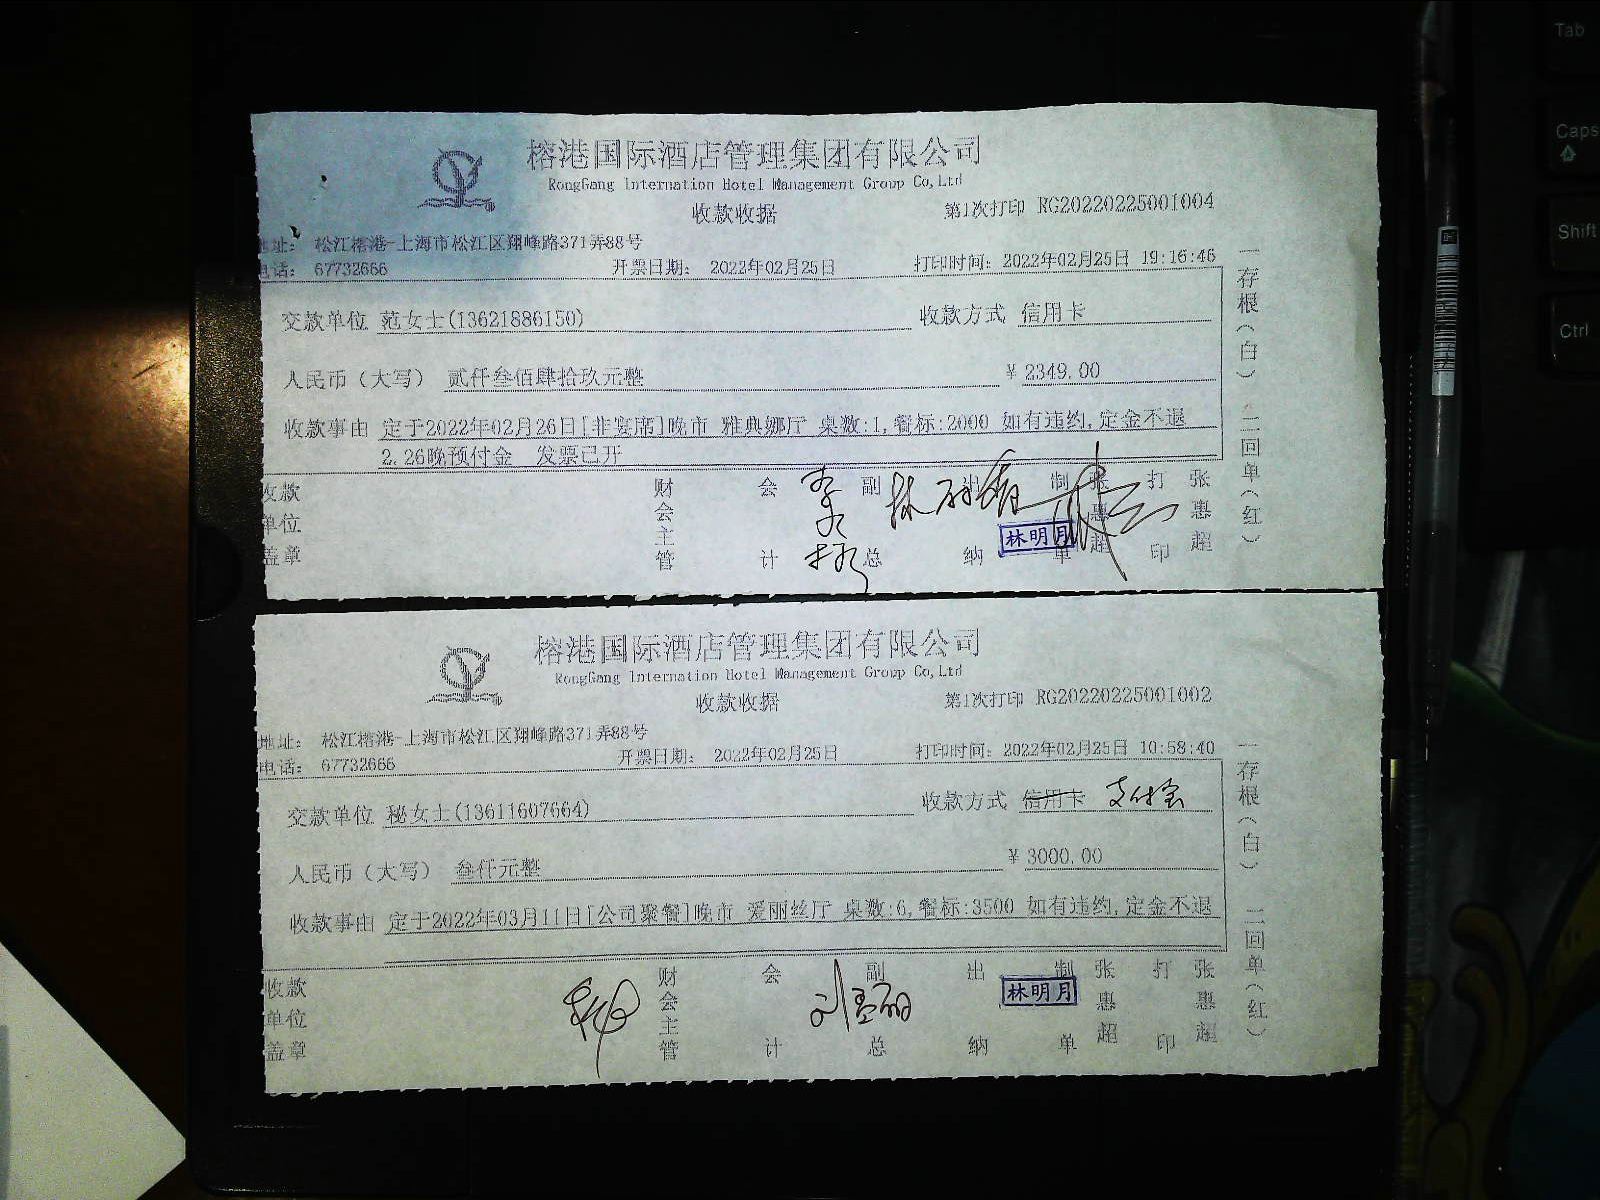 榕港国际酒店管理集团有限公司
RongGang Internation Hotel Management Group Co,Ltd
收款收据
第1次打印 RG20220225001004
地址： 松江榕港-上海市松江区翔峰路371弄88号
电话： 67732666 开票日期： 2022年02月25日 打印时间：2022年02月25日 19:16:46
交款单位 范女士(13621886150) 收款方式 信用卡
人民币（大写） 贰仟叁佰肆拾玖元整 ￥2349.00
收款事由 定于2022年02月26日[非宴席]晚市 雅典娜厅 桌数:1,餐标:2000 如有违约,定金不退
2.26晚预付金 发票已开
收款单位盖章 财会主管 会计 副总 出纳 林明月 制单 张惠超 打印 张惠超
一存根（白） 二回单（红）
榕港国际酒店管理集团有限公司
RongGang Internation Hotel Management Group Co,Ltd
收款收据
第1次打印 RG20220225001002
地址： 松江榕港-上海市松江区翔峰路371弄88号
电话： 67732666 开票日期： 2022年02月25日 打印时间：2022年02月25日 10:58:40
交款单位 秘女士(13611607664) 收款方式 信用卡 支付宝
人民币（大写） 叁仟元整 ￥3000.00
收款事由 定于2022年03月11日[公司聚餐]晚市 爱丽丝厅 桌数:6,餐标:3500 如有违约,定金不退
收款单位盖章 财会主管 会计 副总 出纳 林明月 制单 张惠超 打印 张惠超
一存根（白） 二回单（红）
Tab
Caps
Shift
Ctrl